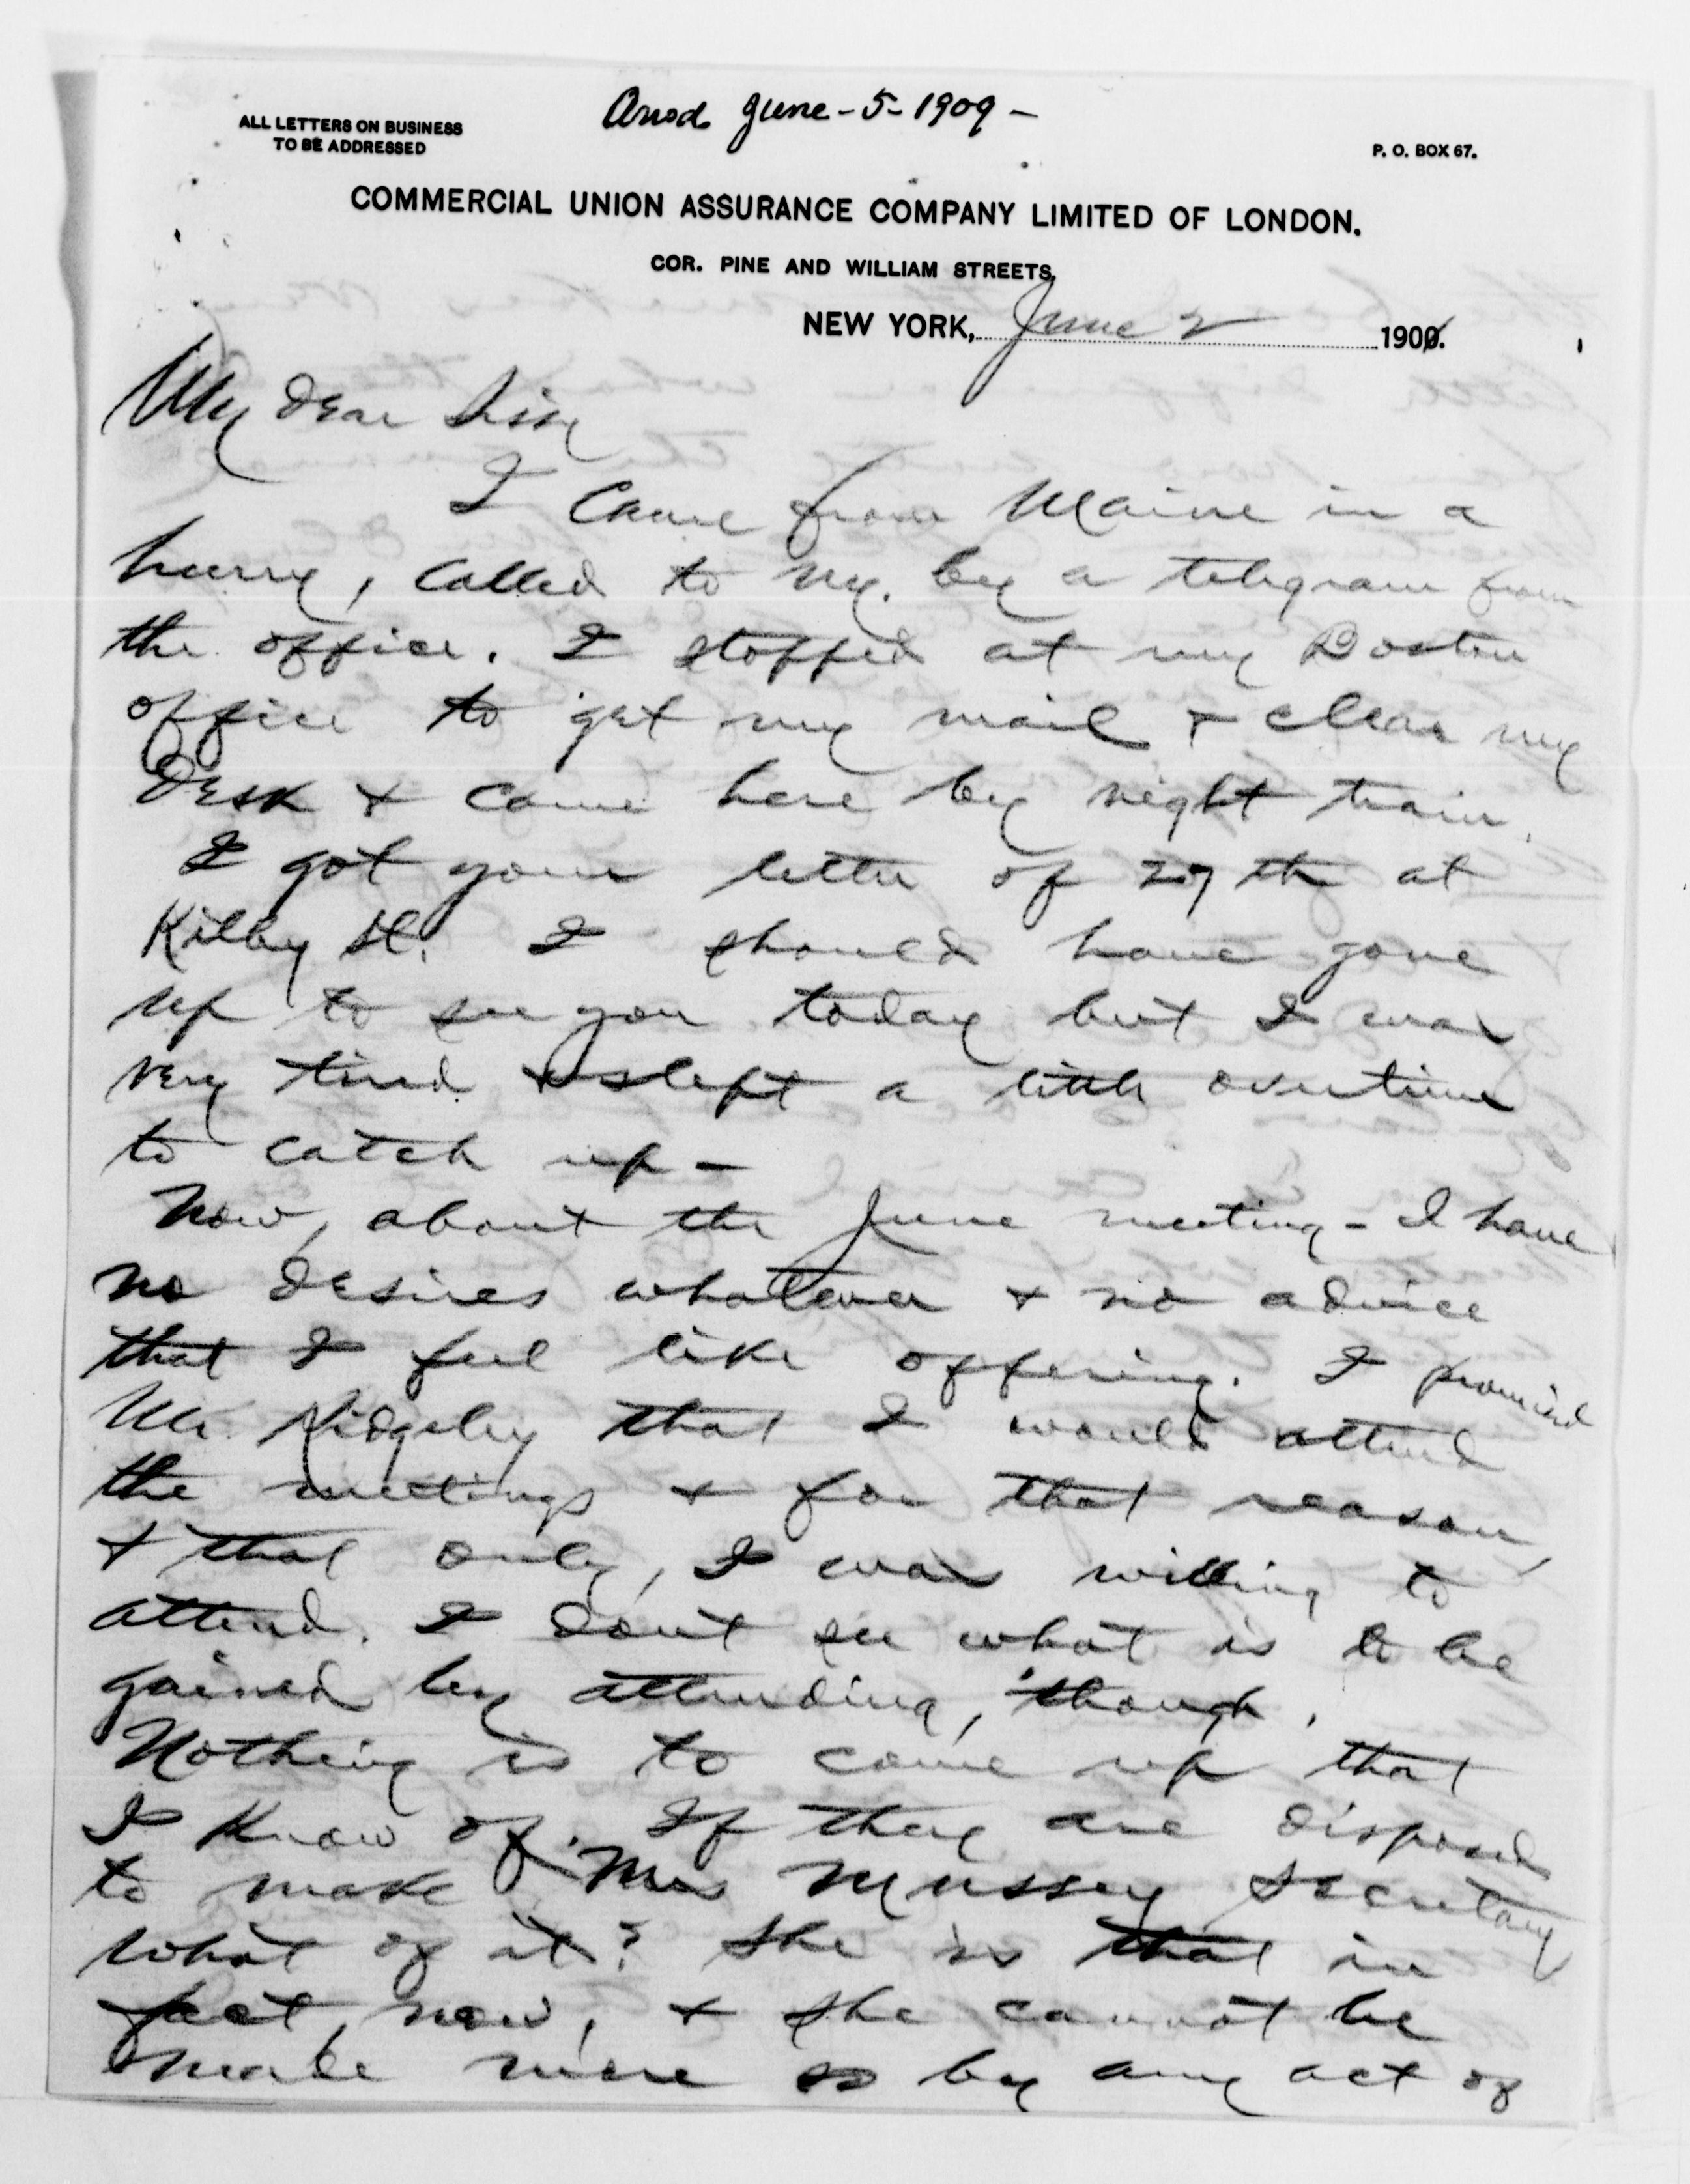 Ansd June - 5 - 1909 -
ALL LETTERS ON BUSINESS
TO BE ADDRESSED
P. O. BOX 67.
COMMERCIAL UNION ASSURANCE COMPANY LIMITED OF LONDON.
COR. PINE AND WILLIAM STREETS,
NEW YORK, June 2 190
My dear Sissy
I came from Maine in a
hurry, called to N.Y. by a telegram from
the office. I stopped at my Boston
office to get my mail & clear my
desk & came here by night train.
I got your letter of 29th at
Kilby St. I should have gone
up to see you today but I was
very tired & slept a little overtime
to catch up -
Now, about the June meeting - I have
no desires whatever & no advice
that I feel like offering. I promised
Mr. Ridgely that I would attend
the meetings & for that reason,
& that only, I was willing to
attend. I don't see what is to be
gained by attending, 'though.
Nothing is to come up that
I know of. If they are disposed
to make Mrs Mussey Secretary
what of it? She is that in
fact, now, & she cannot be
made more so by any act of